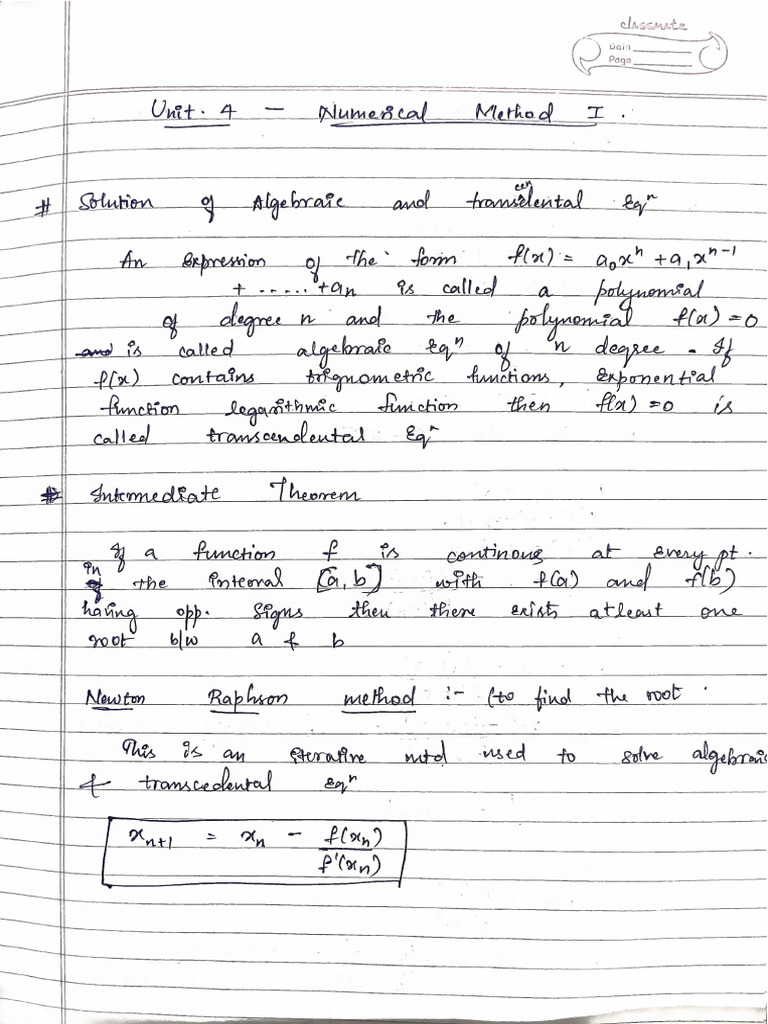 classmate
Date
Page
Unit. 4 - Numerical Method I.
# Solution of Algebraic and transcendental Eqⁿ
An Expression of the form f(x) = a₀xⁿ + a₁xⁿ⁻¹
+ ..... + aₙ is called a polynomial
of degree n and the polynomial f(x) = 0
and is called algebraic Eqⁿ of n degree. If
f(x) contains trignometric functions, Exponential
function legarithmic function then f(x) = 0 is
called transcendental Eqⁿ
# Intermediate Theorem
If a function f is continous at every pt.
in the interval [a, b] with f(a) and f(b)
having opp. signs then there exists atleast one
root b/w a & b
Newton Raphson method :- (to find the root.
This is an iterative mtd used to solve algebraic
& transcedental Eqⁿ
xₙ₊₁ = xₙ - f(xₙ)/f'(xₙ)